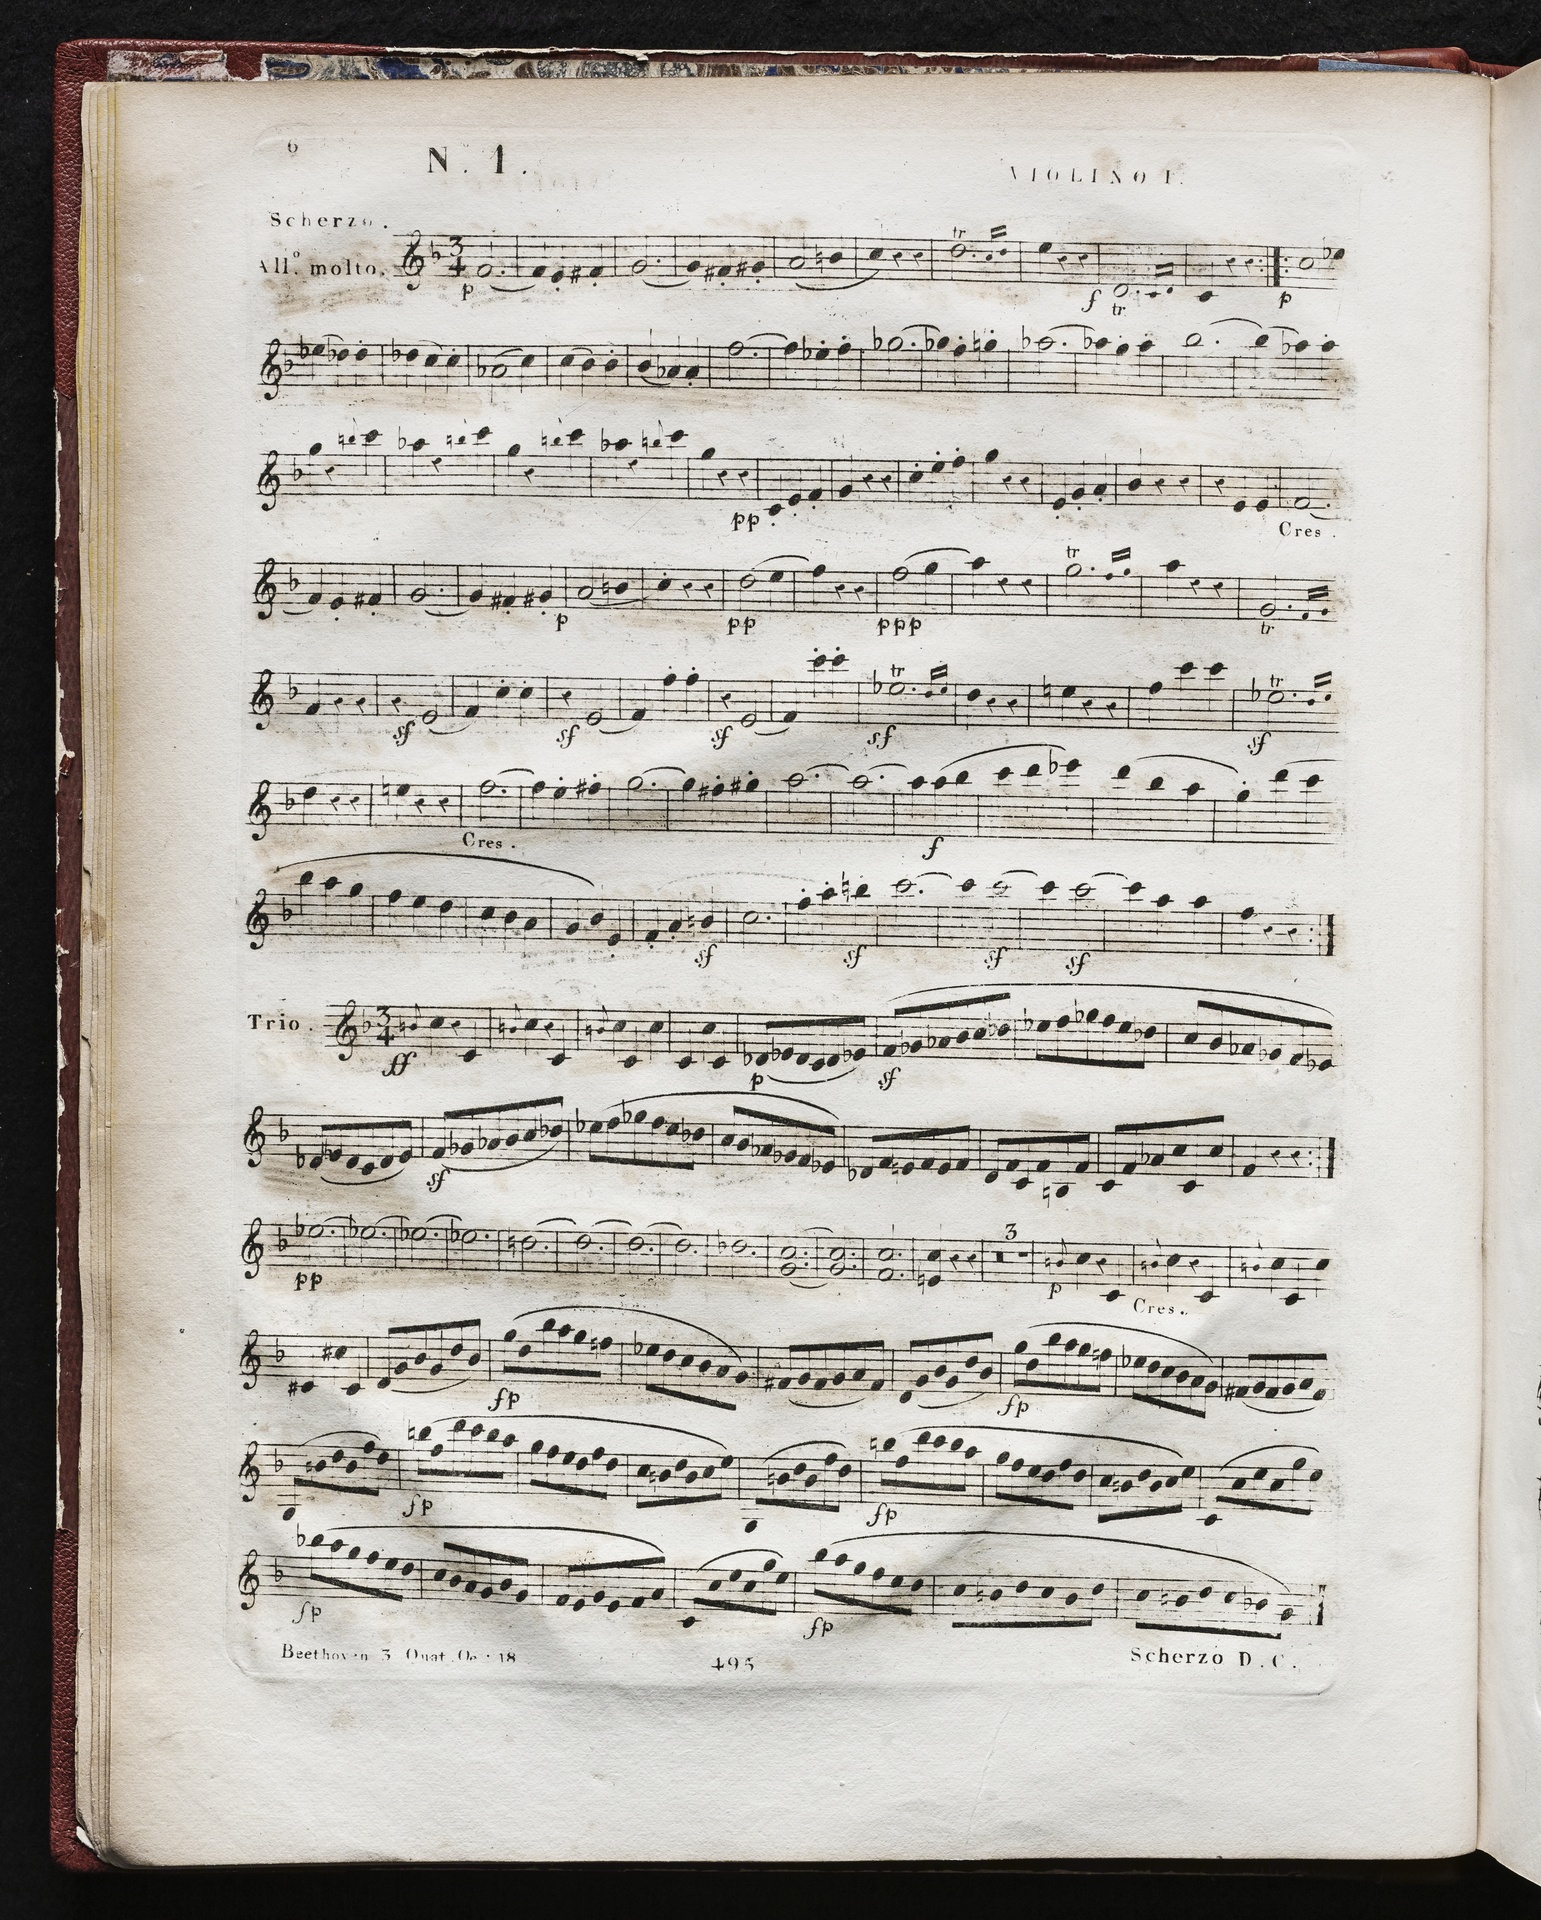 6
N. 1.
VIOLINO I.
Scherzo.
All.º molto.
p
tr
f
tr
p
pp
Cres.
p
pp
ppp
tr
tr
sf
sf
sf
sf
tr
sf
tr
Cres.
f
sf
sf
sf
sf
Trio.
ff
p
sf
sf
pp
3
p
Cres.
fp
fp
fp
fp
fp
fp
Beethoven 3 Quat. Op. 18
495
Scherzo D.C.